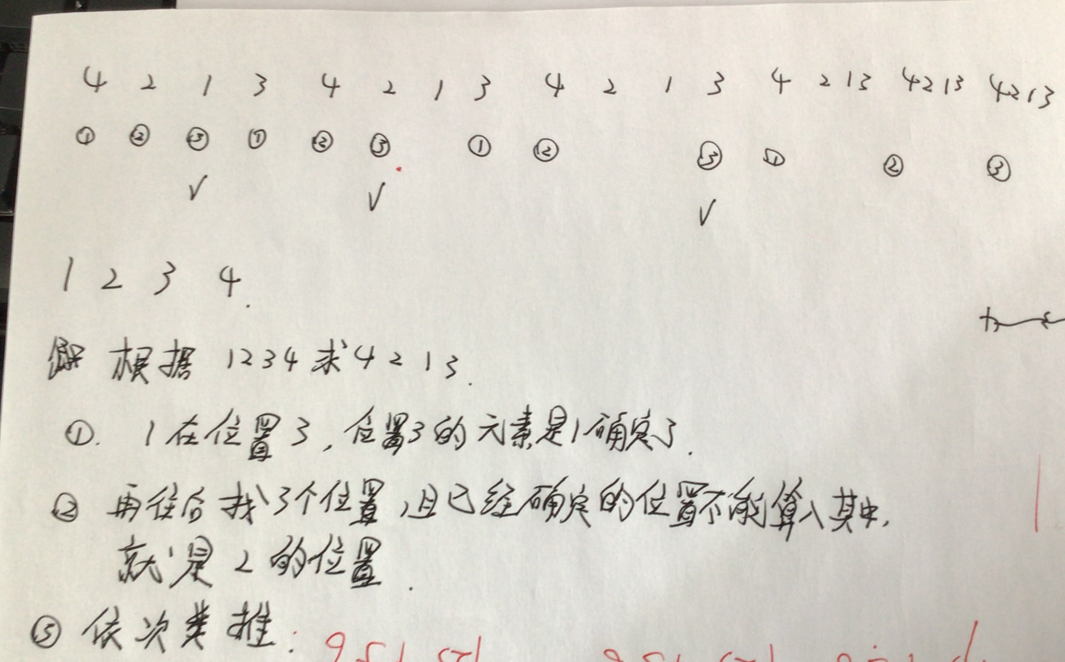 4 2 1 3 4 2 1 3 4 2 1 3 4 2 1 3 4 2 1 3 4 2 1 3
① ② ③ ① ② ③ ① ② ③ ① ② ③
√ √ √
1 2 3 4.
根据 1234 求 4213.
①. 1在位置3,位置3的元素是1确定了.
② 再往后找3个位置,且已经确定的位置不能算入其中,
就是2的位置.
③ 依次类推: